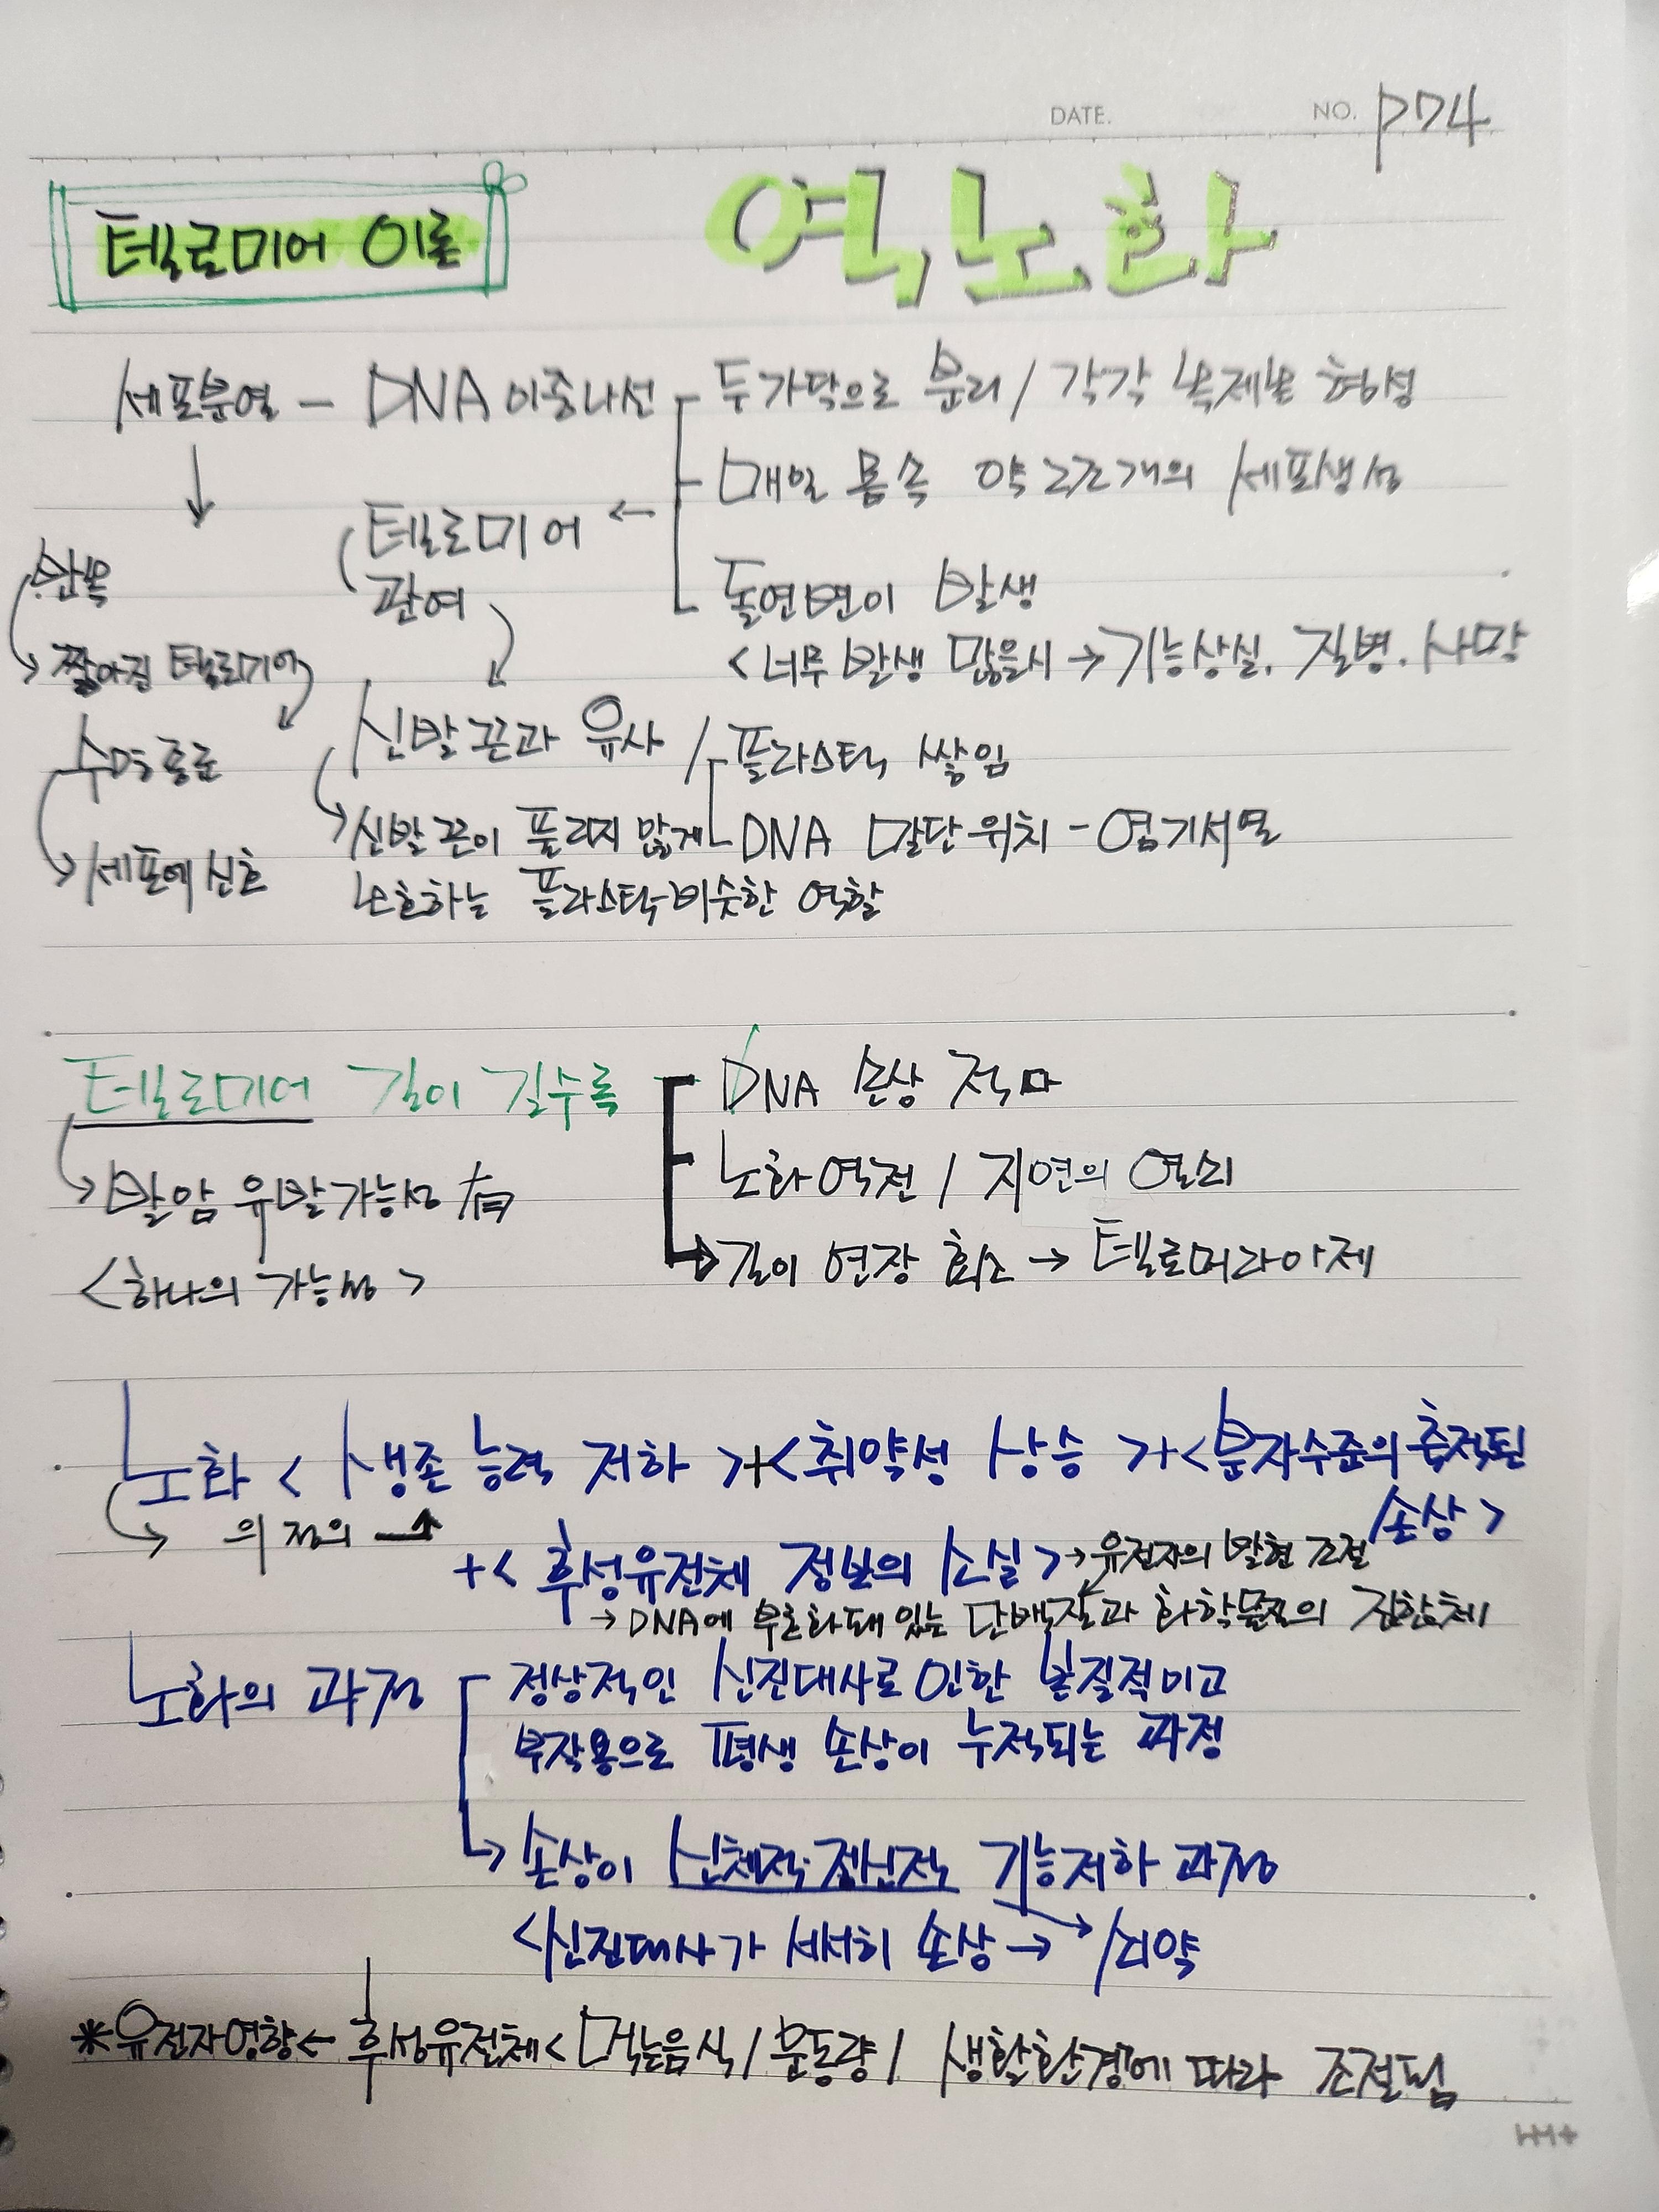 DATE. NO. P74
텔로미어 이론 역노화
세포분열 - DNA 이중나선 - 두가닥으로 분리 / 각각 복제본 형성
매일 몸속 약 2조개의 세포생성
텔로미어 ←
관여
반복
돌연변이 발생
짧아진 텔로미어
<너무 발생 많을시 → 기능상실. 질병. 사망
신발끈과 유사 / 플라스틱 쌓임
수명종료
신발끈이 풀리지 않게 DNA 말단 위치 - 염기서열
세포에 신호
보호하는 플라스틱 비슷한 역할
텔로미어 길이 길수록
DNA 손상 적다
노화역전 / 지연의 열쇠
발암 유발가능성 有
길이 연장 효소 → 텔로머라아제
<하나의 가능성>
노화 <생존 능력 저하>+<취약성 상승>+<분자수준의 축적된
손상>
의 정의 →
+<후성유전체 정보의 소실> → 유전자의 발현 조절
→ DNA에 부호화돼 있는 단백질과 화학물질의 집합체
노화의 과정 정상적인 신진대사로 인한 본질적이고
부작용으로 평생 손상이 누적되는 과정
→ 손상이 신체적·정신적 기능저하 과정
<신진대사가 서서히 손상 → 쇠약
*유전자영향 ← 후성유전체 < 먹는음식 / 운동량 / 생활환경에 따라 조절됨